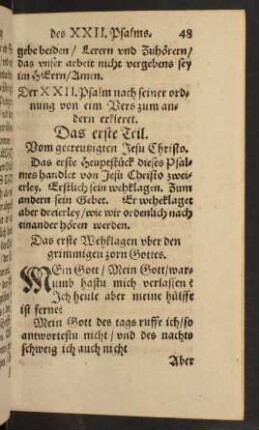 des XXII. Psalms. 48
gebe beiden / Lerern vnd Zuhörern/
das vnser arbeit nicht vergebens sey
im HErrn/Amen.
Der XXII. Psalm nach seiner ord-
nung von eim Vers zum an-
dern erkleret.
Das erste Teil.
Vom gecreutzigten Jesu Christo.
Das erste Heuptstück dieses Psal-
mes handlet von Jesu Christo zwei-
erley. Erstlich sein wehklagen. Zum
andern sein Gebet. Er weheklaget
aber dreierley/wie wir ordenlich nach
einander hören werden.
Das erste Wehklagen vber den
grimmigen zorn Gottes.
MEin Gott / Mein Gott/war-
umb hastu mich verlassen?
Jch heule aber meine hülffe
ist ferne:
Mein Gott des tags ruffe ich/so
antwortestu nicht / vnd des nachts
schweig ich auch nicht
Aber